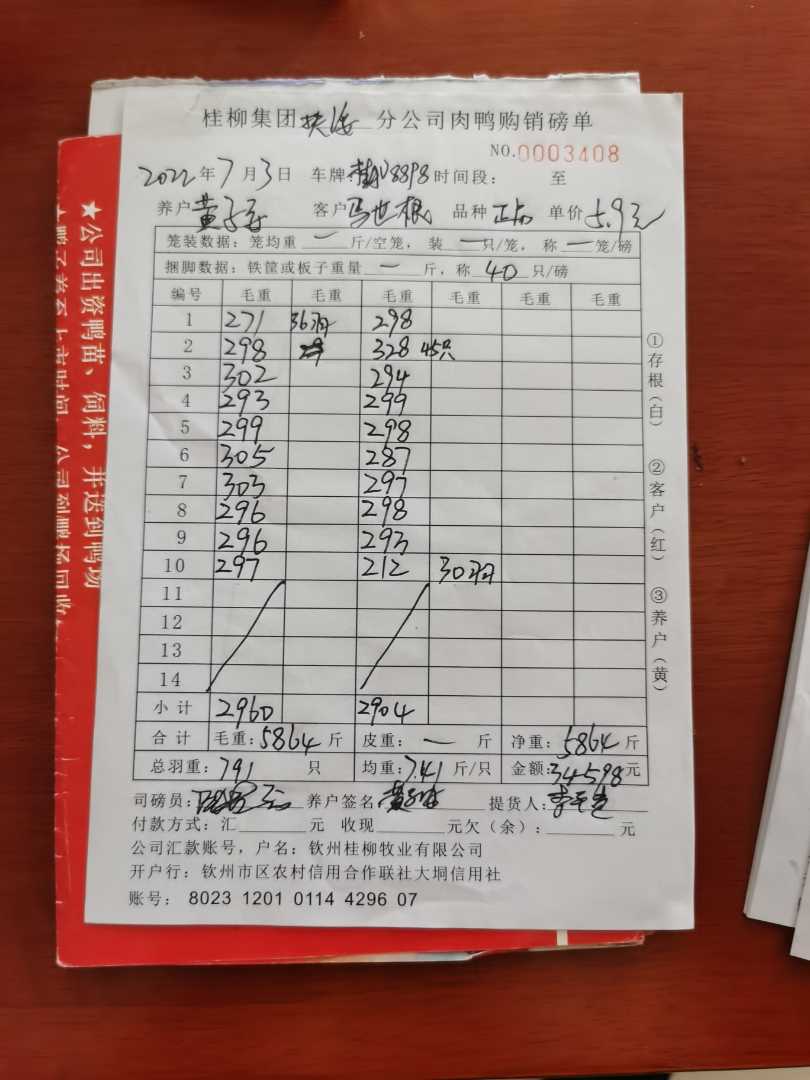 桂柳集团扶绥分公司肉鸭购销磅单
NO.0003408
2022年7月3日 车牌8898时间段: 至
养户黄 客户马世根 品种正右 单价5.9元
笼装数据: 笼均重 一 斤/空笼, 装 一 只/笼, 称 一 笼/磅
捆脚数据: 铁筐或板子重量 一 斤, 称 40 只/磅
编号 毛重 毛重 毛重 毛重 毛重 毛重
1 271 36羽 298
2 298 328 45只
3 302 294
4 293 299
5 299 298
6 305 287
7 303 297
8 296 298
9 296 293
10 297 212 30羽
11
12
13
14
小计 2960 2904
合计 毛重:5864斤 皮重: 一 斤 净重:5864斤
总羽重:791 只 均重:7.41斤/只 金额:34598元
司磅员: 养户签名 黄 提货人:
付款方式: 汇 元 收现 元欠(余): 元
公司汇款账号, 户名: 钦州桂柳牧业有限公司
开户行: 钦州市区农村信用合作联社大垌信用社
账号: 8023 1201 0114 4296 07
①存根(白)
②客户(红)
③养户(黄)
★公司出资鸭苗、饲料,并送到鸭场